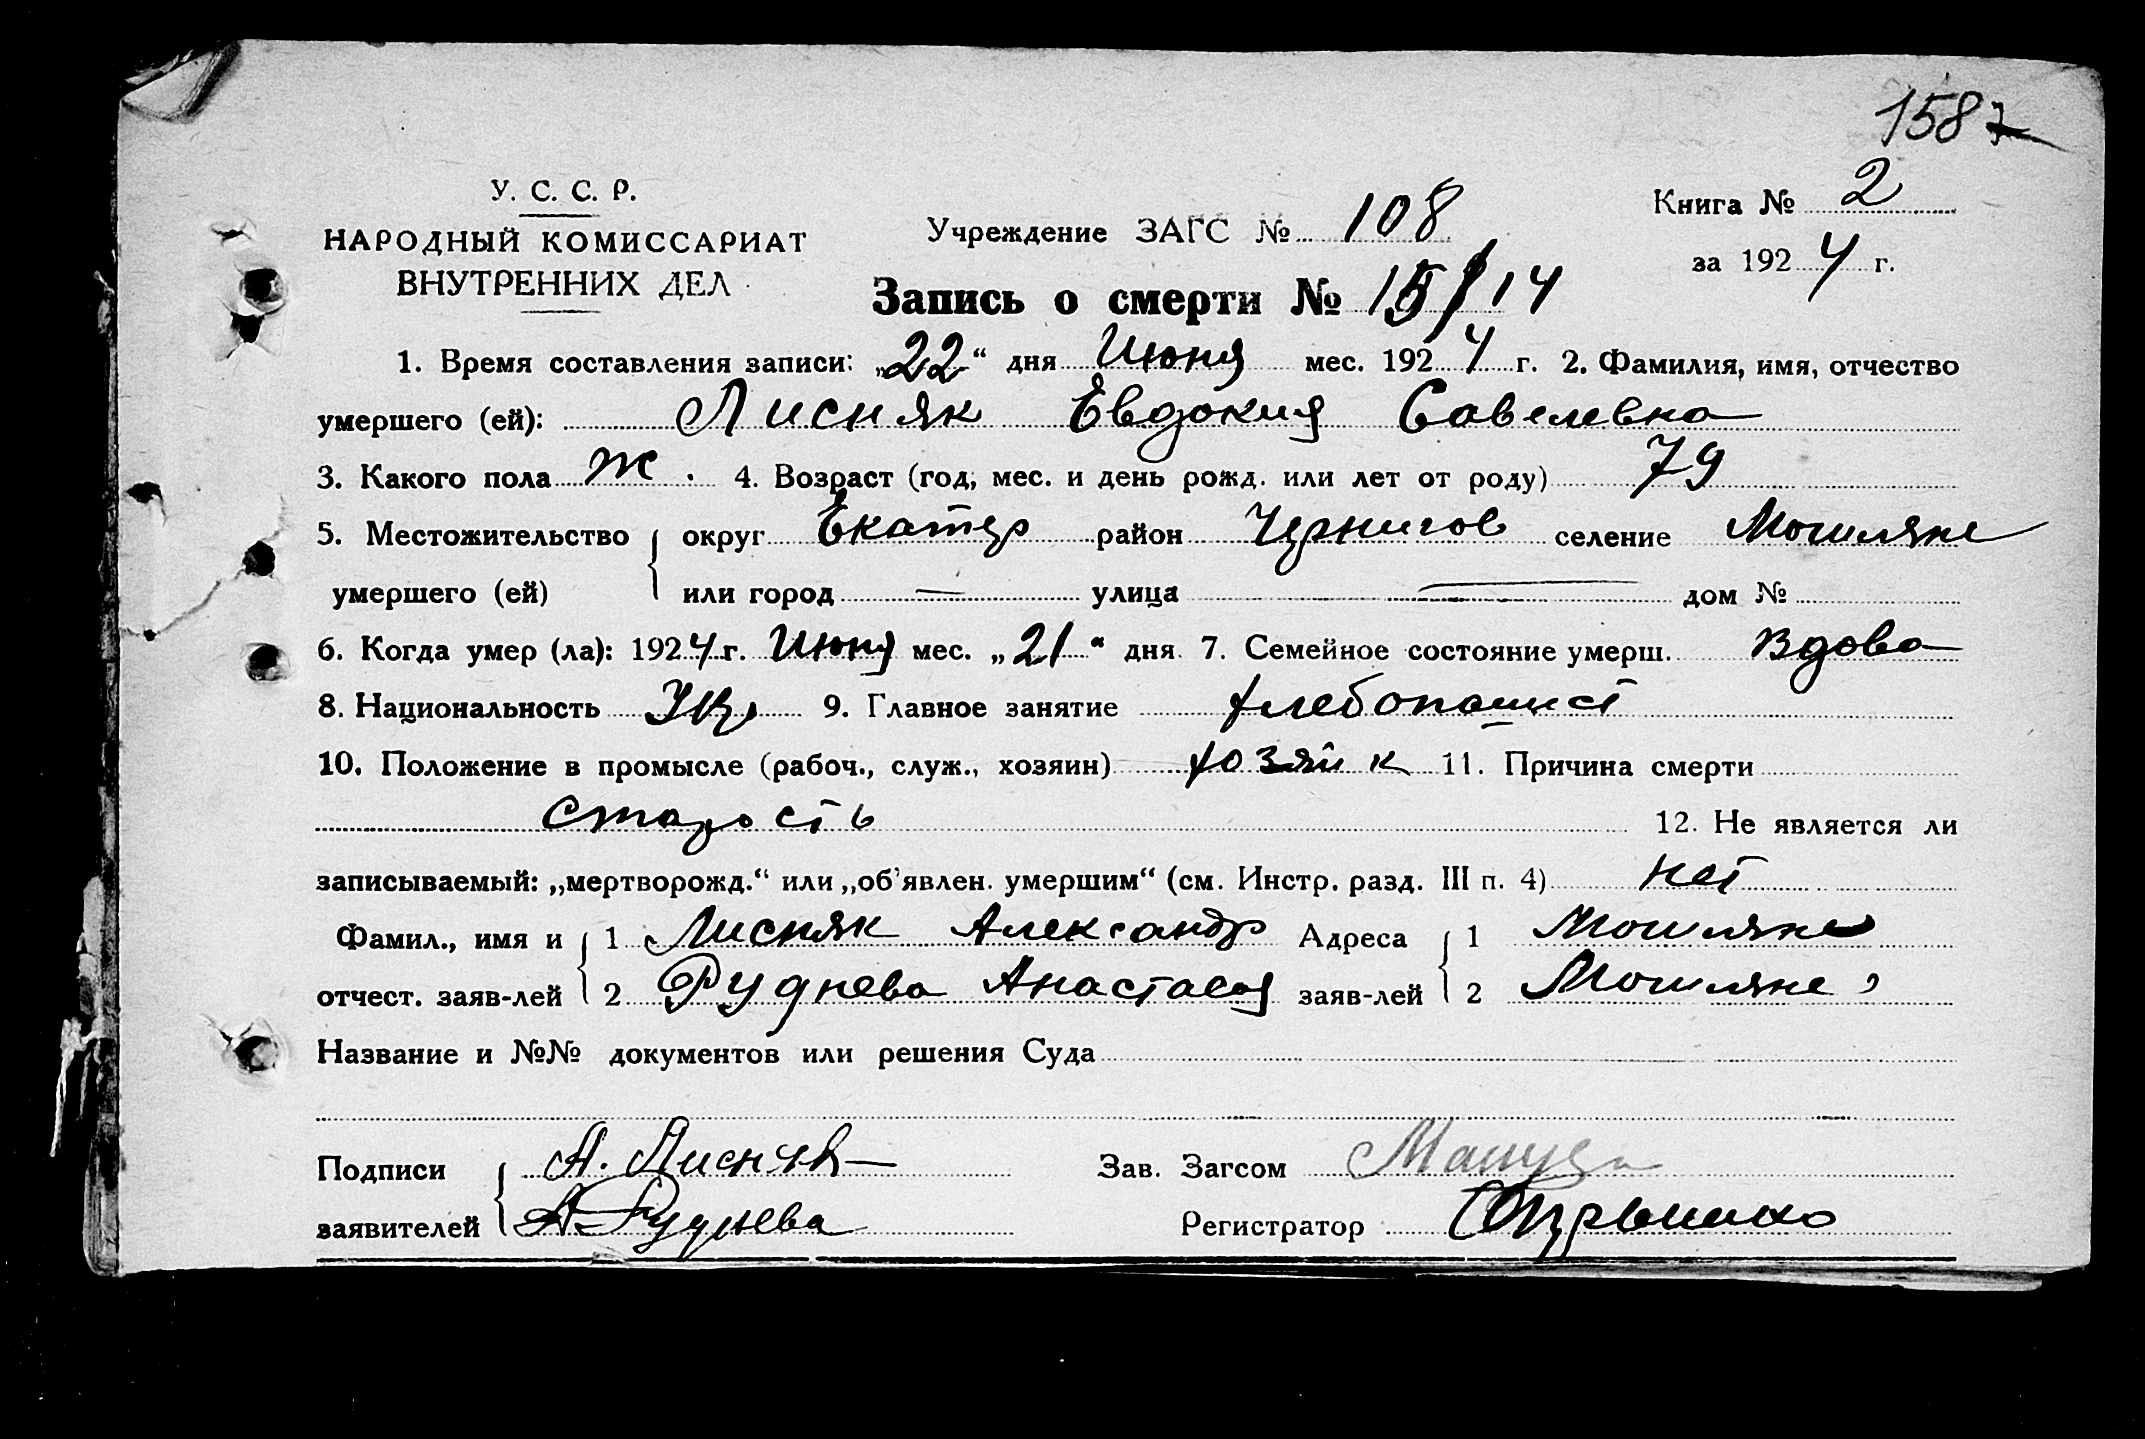 1587
У. С. С. Р.
НАРОДНЫЙ КОМИССАРИАТ
ВНУТРЕННИХ ДЕЛ
Учреждение ЗАГС № 108
Книга № 2
за 1924 г.
Запись о смерти № 15/14
1. Время составления записи: „22“ дня Июня мес. 1924 г. 2. Фамилия, имя, отчество
умершего (ей): Лисняк Евдокия Савелевна
3. Какого пола Ж. 4. Возраст (год, мес. и день рожд. или лет от роду) 79
5. Местожительство округ Екатер район Чернигов селение Могиляне
умершего (ей) или город — улица — дом №
6. Когда умер (ла): 1924 г. Июня мес. „21“ дня 7. Семейное состояние умерш. Вдова
8. Национальность Укр 9. Главное занятие хлебопашест
10. Положение в промысле (рабоч., служ., хозяин) хозяйк 11. Причина смерти
старость 12. Не является ли
записываемый: „мертворожд.“ или „об'явлен. умершим“ (см. Инстр. разд. III п. 4) нет
Фамил., имя и 1 Лисняк Александр Адреса 1 Могиляне
отчест. заяв-лей 2 Руднева Анастасея заяв-лей 2 Могиляне
Название и №№ документов или решения Суда
Подписи А. Лисняк Зав. Загсом
заявителей А Руднева Регистратор